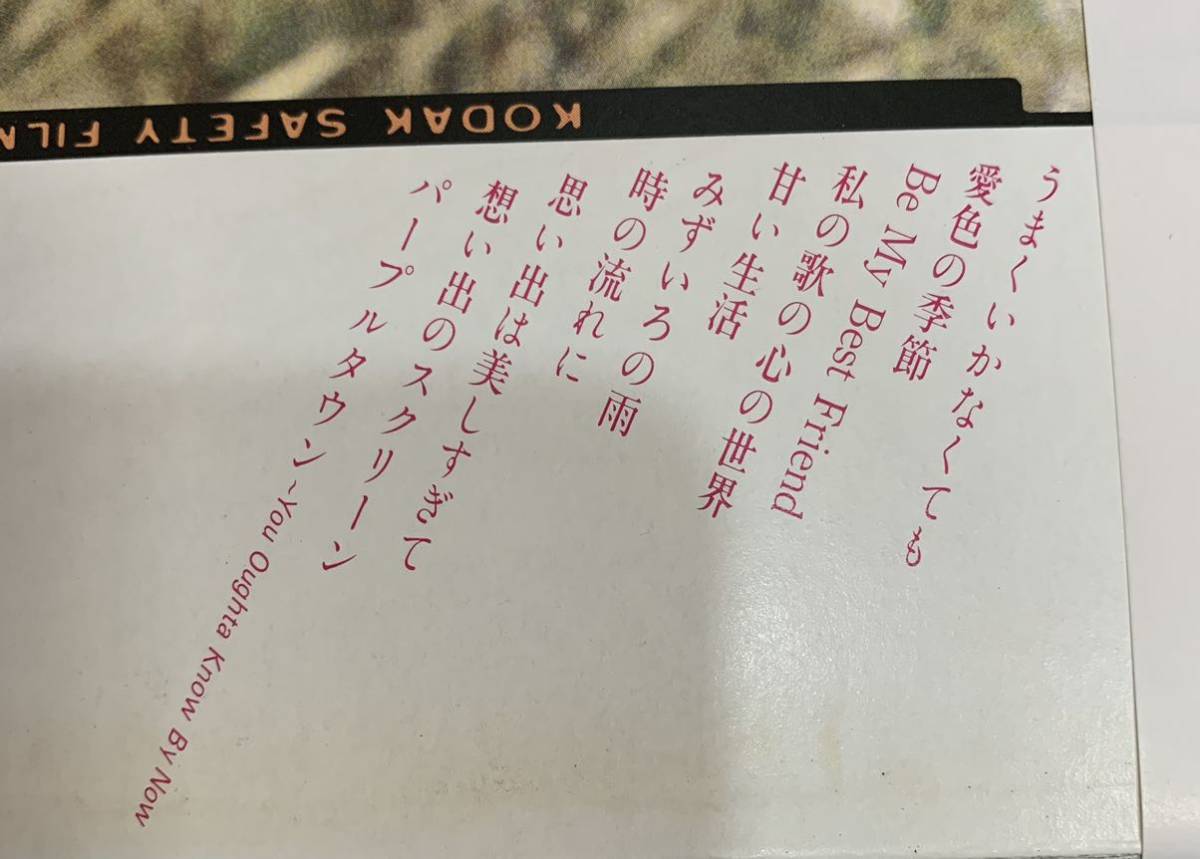 KODAK SAFETY FILM
うまくいかなくても
愛色の季節
Be My Best Friend
私の歌の心の世界
甘い生活
みずいろの雨
時の流れに
思い出は美しすぎて
想い出のスクリーン
パープルタウン~You Oughta Know By Now